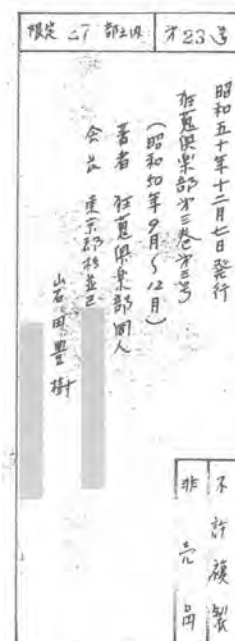 限定 27 部之内
第23号
昭和五十年十二月七日発行
狂蒐倶楽部第三巻第三号
(昭和50年9月〜12月)
著者 狂蒐倶楽部同人
会長 東京都杉並区
岩田豊樹
不許複製
非売品